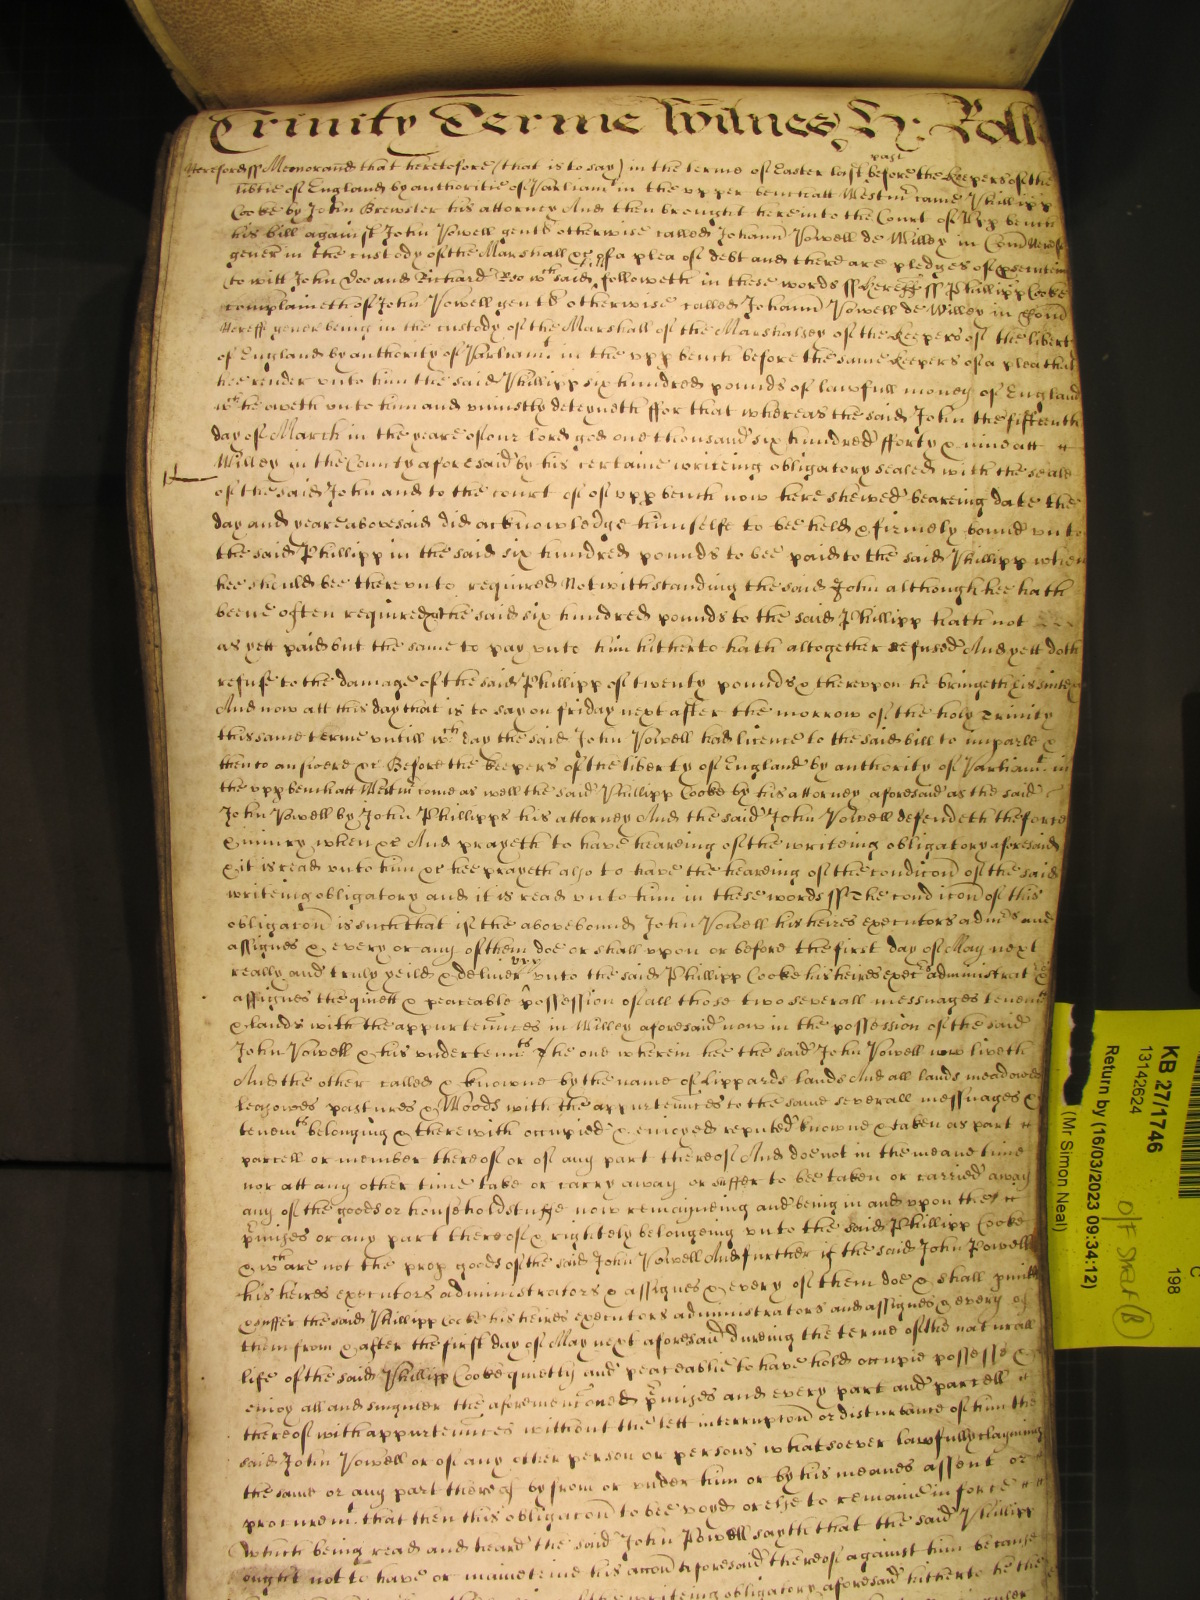 Trinity Terme Witnes H: Roll
Hereford ss Memorand that heretofore (that is to say) in the terme of Easter last past before the Keepers of the
libtie of England by authoritie of Parliamt in the upper bench att Westmr came Phillipp
Cooke by John Brewster his attorney And then brought here into the Court of upp bench
his bill against John Powell gent otherwise called Johann Powell de Willey in Com Heref
gener in the custody of the Marshall &c of a plea of debt and there are pledges of prosecuteing
to witt John Doe and Richard Roe wch said followeth in these words ss Hereff ss Phillipp Cooke
complaineth of John Powell gent otherwise called Johann Powell de Willey in Com
Hereff gener being in the custody of the Marshall of the Marshalsey of the Keepers of the libert
of England by authority of Parliamt in the upp bench before the same Keepers of a plea that
hee render unto him the said Phillipp six hundred pounds of lawfull money of England
wch he oweth unto him and uniustly deteyneth ffor that whereas the said John the fifteenth
day of March in the yeare of our lord god one thousand six hundred fforty & nine att
Willey in the County aforesaid by his certaine writeing obligatory sealed with the seale
of the said John and to the court of of upp bench now here shewed beareing date the
day and yeare abovesaid did acknowledge himselfe to bee held & firmely bound unto
the said Phillipp in the said six hundred pounds to bee paid to the said Phillipp when
hee should bee there unto required Notwithstanding the said John although hee hath
beene often required the said six hundred pounds to the said Phillipp hath not
as yett paid but the same to pay unto him hitherto hath altogether refused And yett doth
refuse to the damage of the said Phillipp of twenty pounds & thereupon he bringeth his suite
And now att this day that is to say on friday next after the morrow of the holy Trinity
this same terme untill wch day the said John Powell had licence to the said bill to imparle &
then to answere &c Before the keepers of the liberty of England by authority of Parliamt in
the upp bench att Westmr come as well the said Phillipp Cooke by his attorney aforesaid as the said
John Powell by John Phillipps his attorney And the said John Powell defendeth the force
& iniury when &c And prayeth to have heareing of the writeing obligatory aforesaid
& it is read unto him &c hee prayeth also to have the heareing of the condicon of the said
writeing obligatory and it is read unto him in these words ss The condicon of this
obligacon is such that if the abovebound John Powell his heires executors admrs and
assignes & every or any of them doe or shall upon or before the first day of May next
really and truly yeild & deliver upp unto the said Phillipp Cooke his heires exect administrat &
assignes the quiett & peaceable possession of all those two severall messuages tenemts
& lands with the appurtennces in Willey aforesaid now in the possession of the said
John Powell & his undertennts the one wherein hee the said John Powell now liveth
And the other called & knowne by the name of Lippards lands And all lands meadowes
leasowes pastures & Woods with the appurtennces to the same severall messuages &
tenemts belonging & therewith occupied & enioyed reputed knowne & taken as part
parcell or member thereof or of any part thereof And doe not in the meane time
nor att any other time take or carry away or suffer to bee taken or carried away
any of the goods or householdstuffe now remayneing and being in and upon the
pmises or any part thereof & rightely belongeing unto the said Phillipp Cooke
& wch are not the prop goods of the said John Powell And further if the said John Powell
his heires executors administrators & assignes & every of them doe & shall pmitt
& suffer the said Phillipp Cooke his heires executors administrators and assignes & every of
them from & after the first day of May next aforesaid dureing the terme of the naturall
life of the said Phillipp Cooke quietly and peaceablie to have hold occupie possesse &
enioy all and singuler the aforementoned pmises and every part and parcell
thereof with appurtennces without the lett interrupton or disturbance of him the
said John Powell or of any other person or persons whatsoever lawfully clayming
the same or any part thereof by from or under him or by his meanes assent or
procurem. that then this obligacon to bee voyd or else to remaine in force
Which being read and heard the said John Powell sayth that the said Phillipp
ought not to have or mainteine his accon aforesaid thereof against him because
writeing obligatory aforesaid hitherto he the
KB 27/1746
13142624
C
198
Return by (16/03/2023 09:34:12)
(Mr Simon Neal)